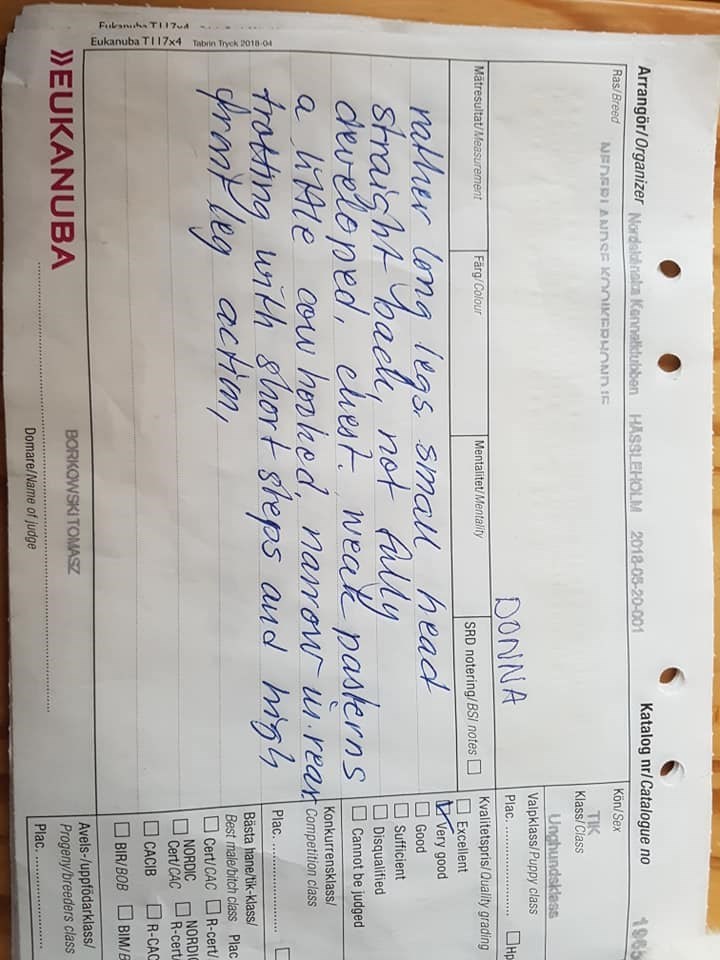 Arrangör/Organizer Nordskånska Kennelklubben HÄSSLEHOLM 2018-05-20-001
Katalog nr/Catalogue no
Ras/Breed
NEDERLANDSE KOOIKERHONDJE
Kön/Sex
TIK
Klass/Class
Unghundsklass
DONNA
Valpklass/Puppy class
Plac.
Mätresultat/Measurement
Färg/Colour
Mentalitet/Mentality
SRD notering/BSI notes
Kvalitetspris/Quality grading
Excellent
Very good
Good
Sufficient
Disqualified
Cannot be judged
rather long legs. small head
straight back, not fully
developed, chest. weak pasterns
a little cow hocked, narrow in rear
trotting with short steps and high
front leg action,
Konkurrensklass/
Competition class
Plac.
Bästa hane/tik-klass/
Best male/bitch class Plac
Cert/CAC R-cert/
NORDIC NORDIC
Cert/CAC R-cert/
CACIB R-CAC
BIR/BOB BIM/B
Avels-/uppfödarklass/
Progeny/breeders class
Plac.
EUKANUBA
BORKOWSKI TOMASZ
Domare/Name of judge
Eukanuba T117x4 Tabrin Tryck 2018-04